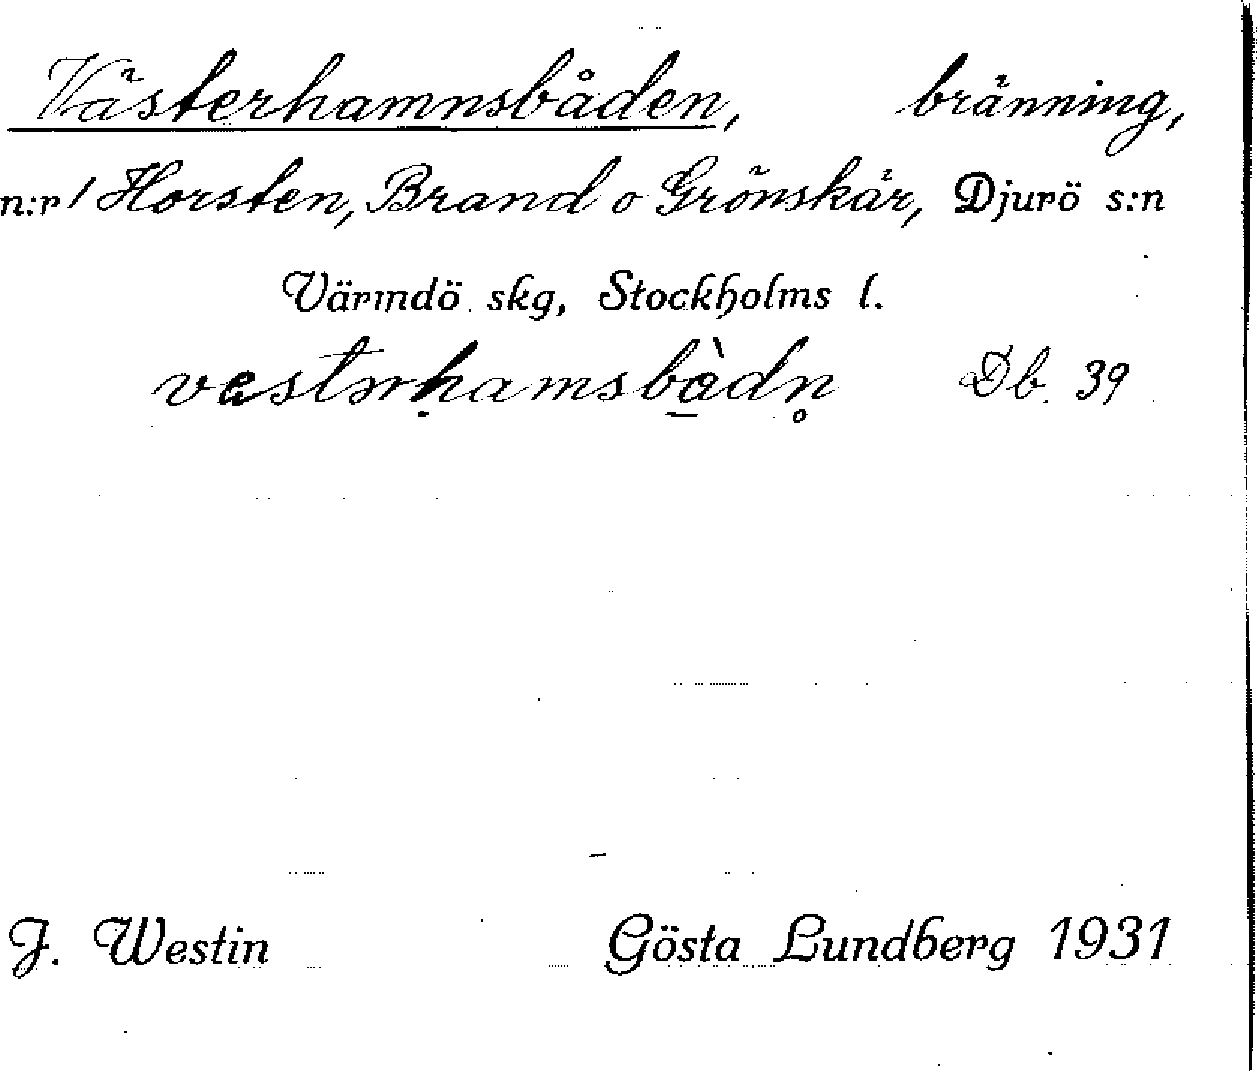 Västerhamnsbåden, bränning,
n:r 1 Horsten, Brand o Grönskär, Djurö s:n
Värmdö skg, Stockholms l.
Db. 39
J. Westin Gösta Lundberg 1931